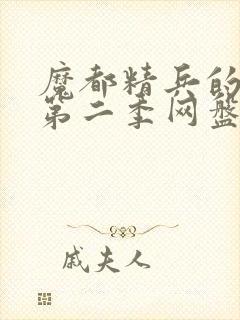 魔都精兵的
第二季网盘
戚夫人